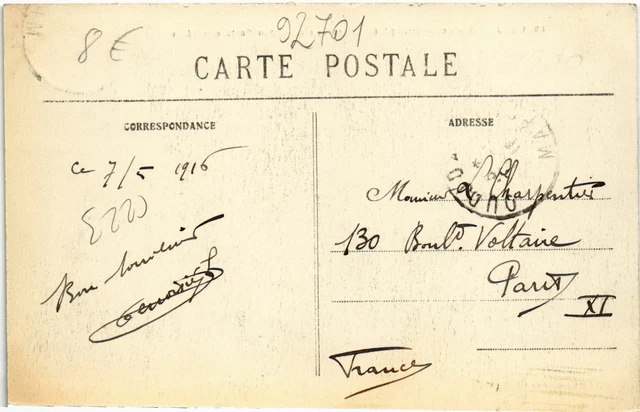 92701
8 €
CARTE POSTALE
CORRESPONDANCE
ADRESSE
ce 7/5 1916
Monsieur Charpentier
130 Boul^d. Voltaire
Bon souvenir
Paris
XI
France